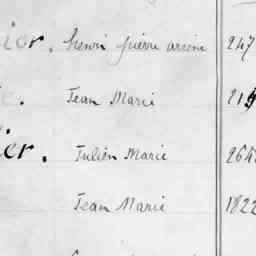 ior. henri pierre arsène 247
e. Jean Marie
er. Julien Marie 264
Jean Marie 1822